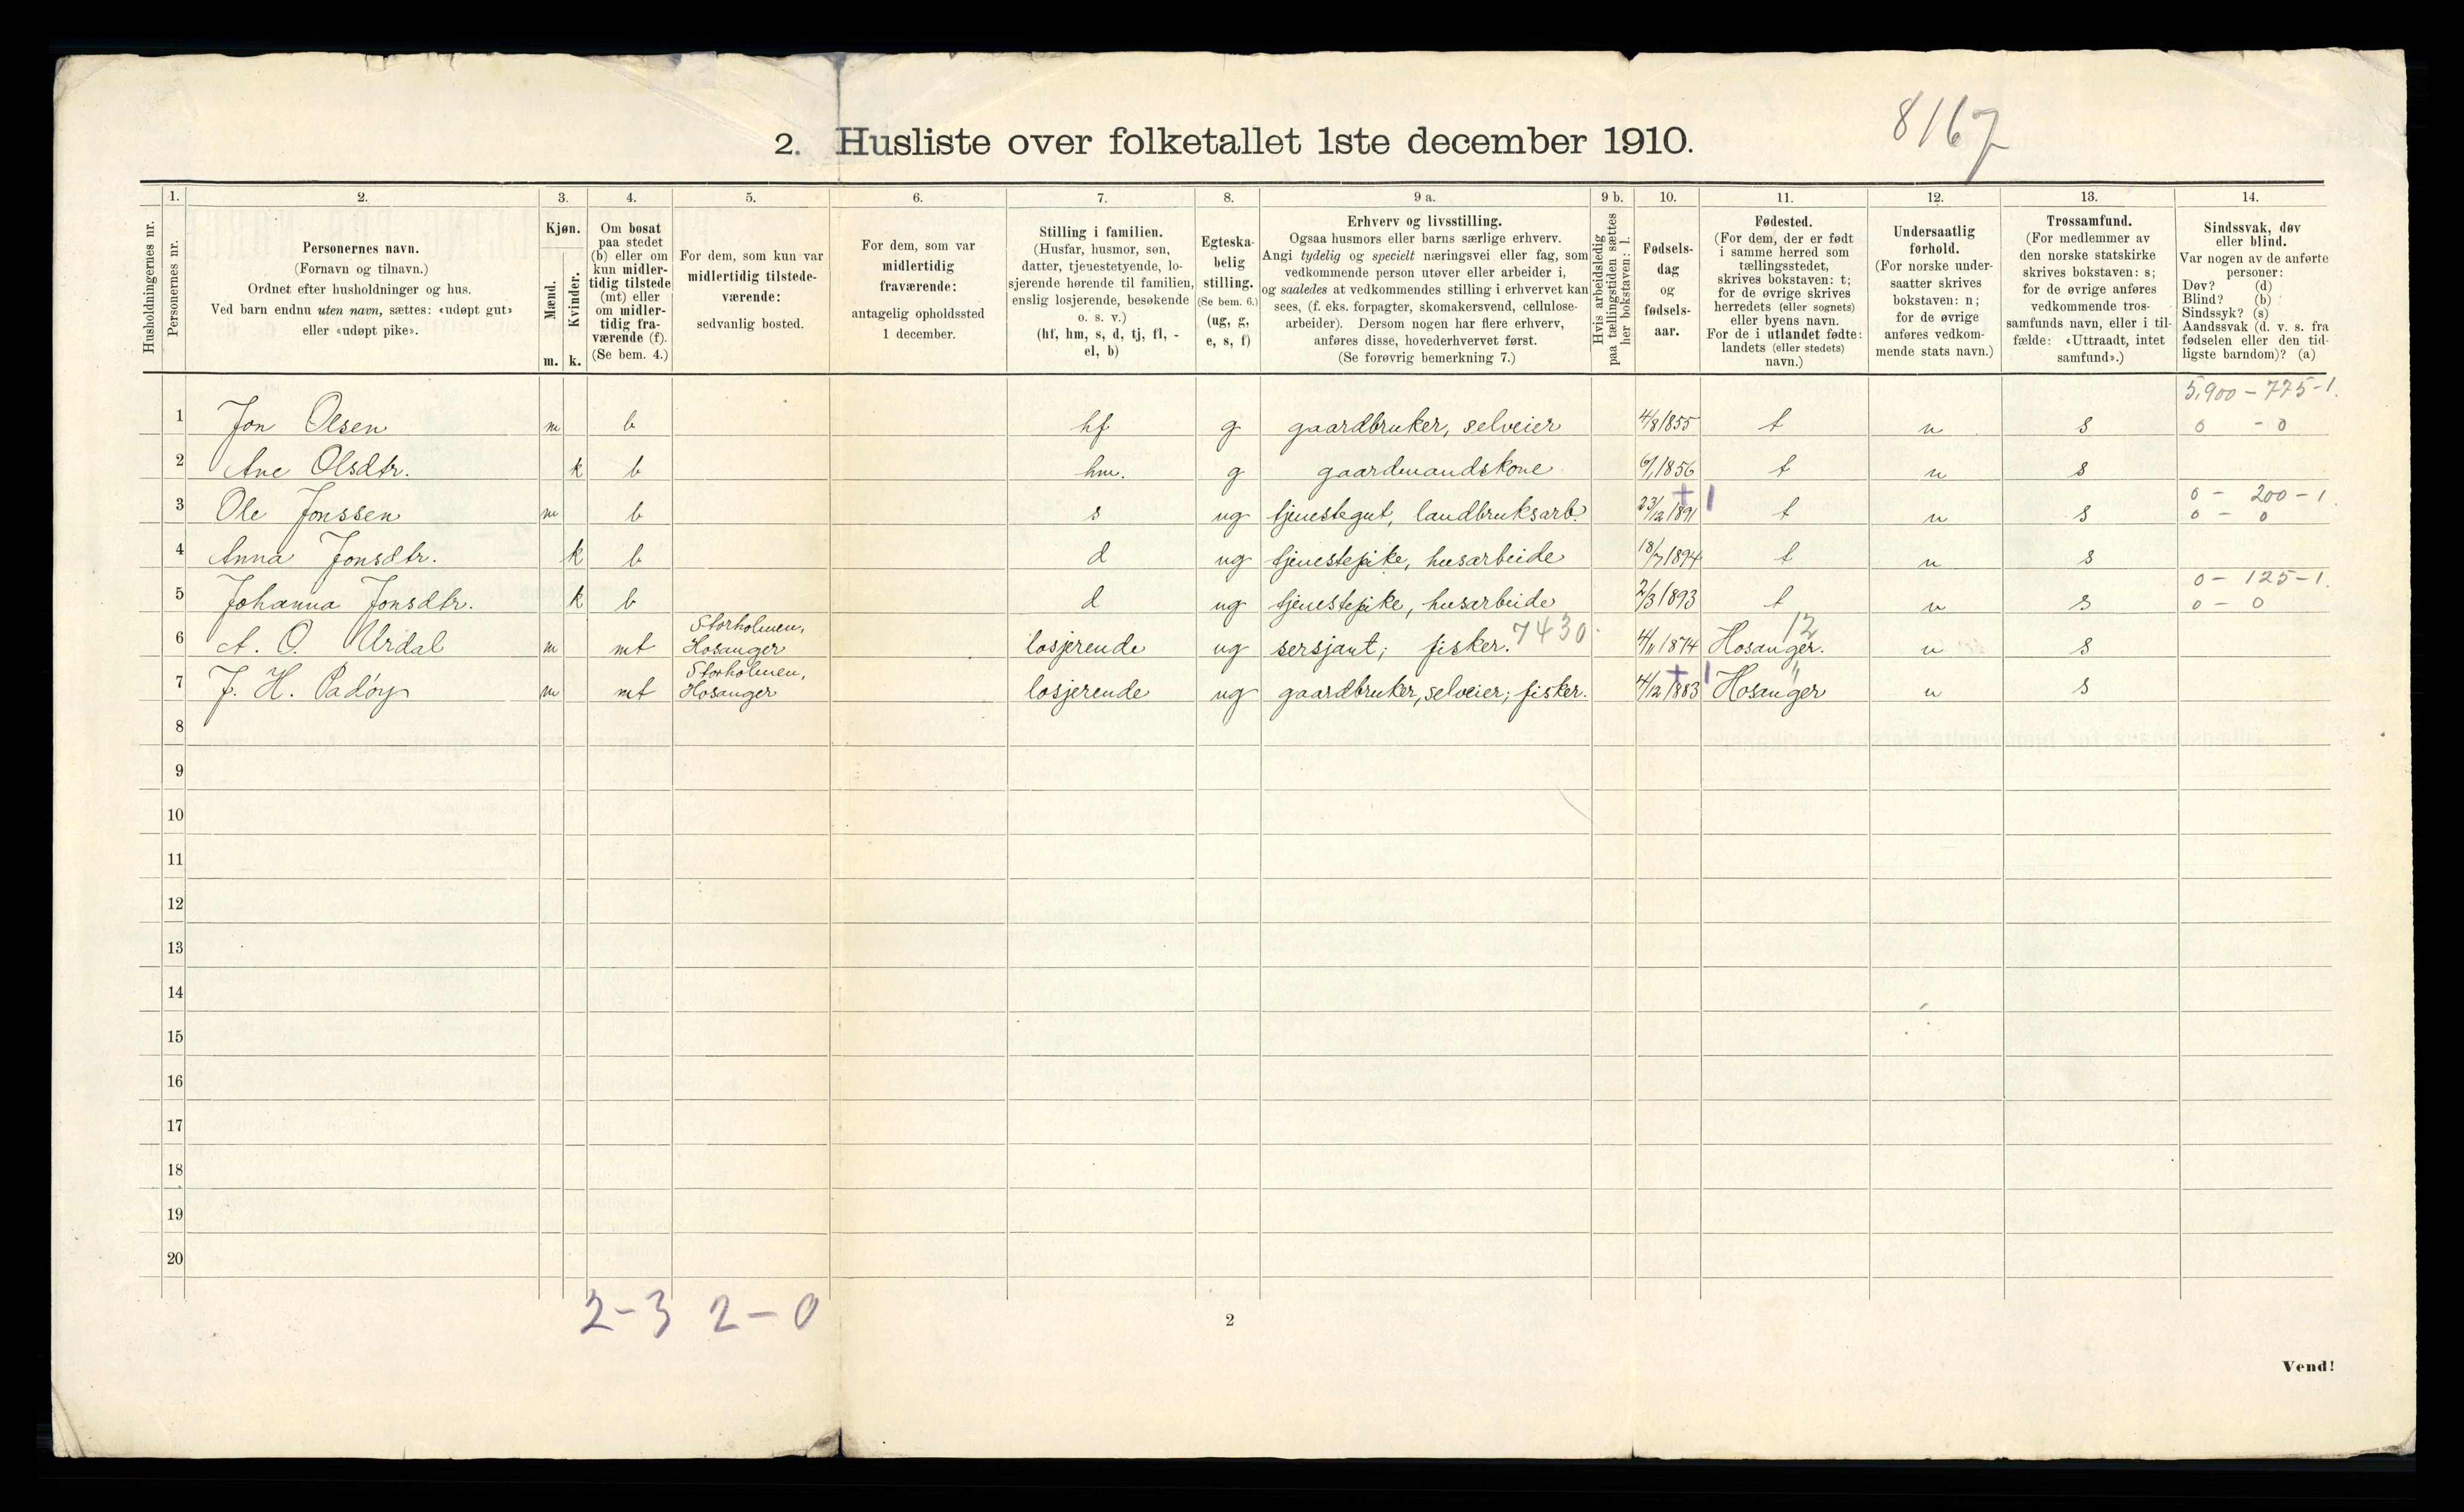 8167
2. Husliste over folketallet 1ste december 1910.
Husholdningernes nr.
1.
Personernes nr.
2.
Personernes navn.
(Fornavn og tilnavn.)
Ordnet efter husholdninger og hus.
Ved barn endnu uten navn, sættes: «udøpt gut»
eller «udøpt pike».
3.
Kjøn.
Mænd.
Kvinder.
m. k.
4.
Om bosat
paa stedet
(b) eller om
kun midler-
tidig tilstede
(mt) eller
om midler-
tidig fra-
værende (f).
(Se bem. 4.)
5.
For dem, som kun var
midlertidig tilstede-
værende:
sedvanlig bosted.
6.
For dem, som var
midlertidig
fraværende:
antagelig opholdssted
1 december.
7.
Stilling i familien.
(Husfar, husmor, søn,
datter, tjenestetyende, lo-
sjerende hørende til familien,
enslig losjerende, besøkende
o. s. v.)
(hf, hm, s, d, tj, fl, -
el, b)
8.
Egteska-
belig
stilling.
(Se bem. 6.)
(ug, g,
e, s, f)
9 a.
Erhverv og livsstilling.
Ogsaa husmors eller barns særlige erhverv.
Angi tydelig og specielt næringsvei eller fag, som
vedkommende person utøver eller arbeider i,
og saaledes at vedkommendes stilling i erhvervet kan
sees, (f. eks. forpagter, skomakersvend, cellulose-
arbeider). Dersom nogen har flere erhverv,
anføres disse, hovederhvervet først.
(Se forøvrig bemerkning 7.)
9 b.
Hvis arbeidsledig
paa tællingstiden sættes
her bokstaven: l.
10.
Fødsels-
dag
og
fødsels-
aar.
11.
Fødested.
(For dem, der er født
i samme herred som
tællingsstedet,
skrives bokstaven: t;
for de øvrige skrives
herredets (eller sognets)
eller byens navn.
For de i utlandet fødte:
landets (eller stedets)
navn.)
12.
Undersaatlig
forhold.
(For norske under-
saatter skrives
bokstaven: n;
for de øvrige
anføres vedkom-
mende stats navn.)
13.
Trossamfund.
(For medlemmer av
den norske statskirke
skrives bokstaven: s;
for de øvrige anføres
vedkommende tros-
samfunds navn, eller i til-
fælde: «Uttraadt, intet
samfund».)
14.
Sindssvak, døv
eller blind.
Var nogen av de anførte
personer:
Døv? (d)
Blind? (b)
Sindssyk? (s)
Aandssvak (d. v. s. fra
fødselen eller den tid-
ligste barndom)? (a)
5.900 - 775-1.
1 Jon Olsen m b hf g gaardbruker, selveier 4/8 1855 t n s 0 - 0
2 Ane Olsdtr. k b hm. g gaardmandskone 6/1 1856 t n s
+ 1 0 - 200 - 1
3 Ole Jonssen m b s ug tjenestegut, landbruksarb. 23/12 1891 t n s 0 - 0
4 Anna Jonsdtr. k b d ug tjenestepike, husarbeide 18/7 1894 t n s
0 - 125 - 1.
5 Johanna Jonsdtr. k b d ug tjenestepike, husarbeide 2/3 1893 t n s 0 - 0
Storholmen, 7430. 12
6 A. O. Urdal m mt Hosanger losjerende ug sersjant; fisker. 4/11 1874 Hosanger. n s
Storholmen, + 1 "
7 J. H. Padøy m mt Hosanger losjerende ug gaardbruker, selveier; fisker. 4/12 1883 Hosanger n s
8
9
10
11
12
13
14
15
16
17
18
19
20
2-3 2-0
2
Vend!